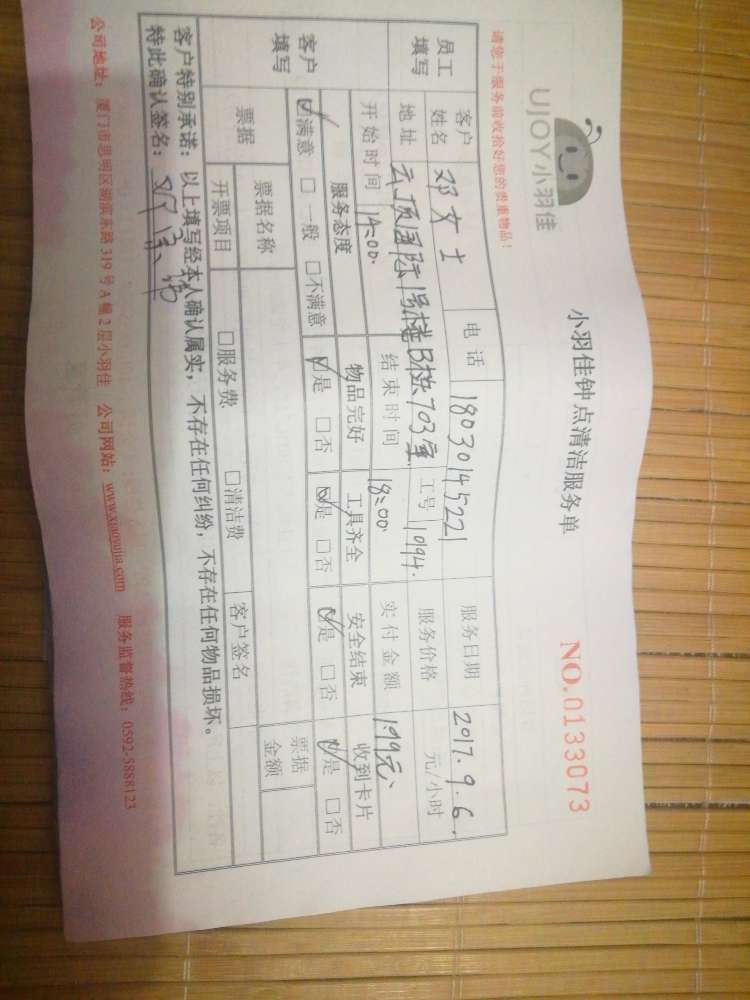 UJOY小羽佳
小羽佳钟点清洁服务单
NO.0133073
请您于服务前收拾好您的贵重物品!
员工填写
客户姓名 邓女士 电话 18030145221 服务日期 2017.9.6.
地址 云顶国际1号楼B栋703座 工号 0194. 服务价格 元/小时
开始时间 14:00. 结束时间 18:00 实付金额 199元
客户填写
服务态度 物品完好 工具齐全 安全结束 收到卡片
☑满意 □一般 □不满意 ☑是 □否 ☑是 □否 ☑是 □否 ☑是 □否
票据 票据名称 票据金额
开票项目 □服务费 □清洁费 客户签名
客户特别承诺:以上填写经本人确认属实,不存在任何纠纷,不存在任何物品损坏。
特此确认签名:
公司地址:厦门市思明区湖滨东路319号A幢2层小羽佳 公司网站:www.xiaoyujia.com 服务监督热线:0592-5888123